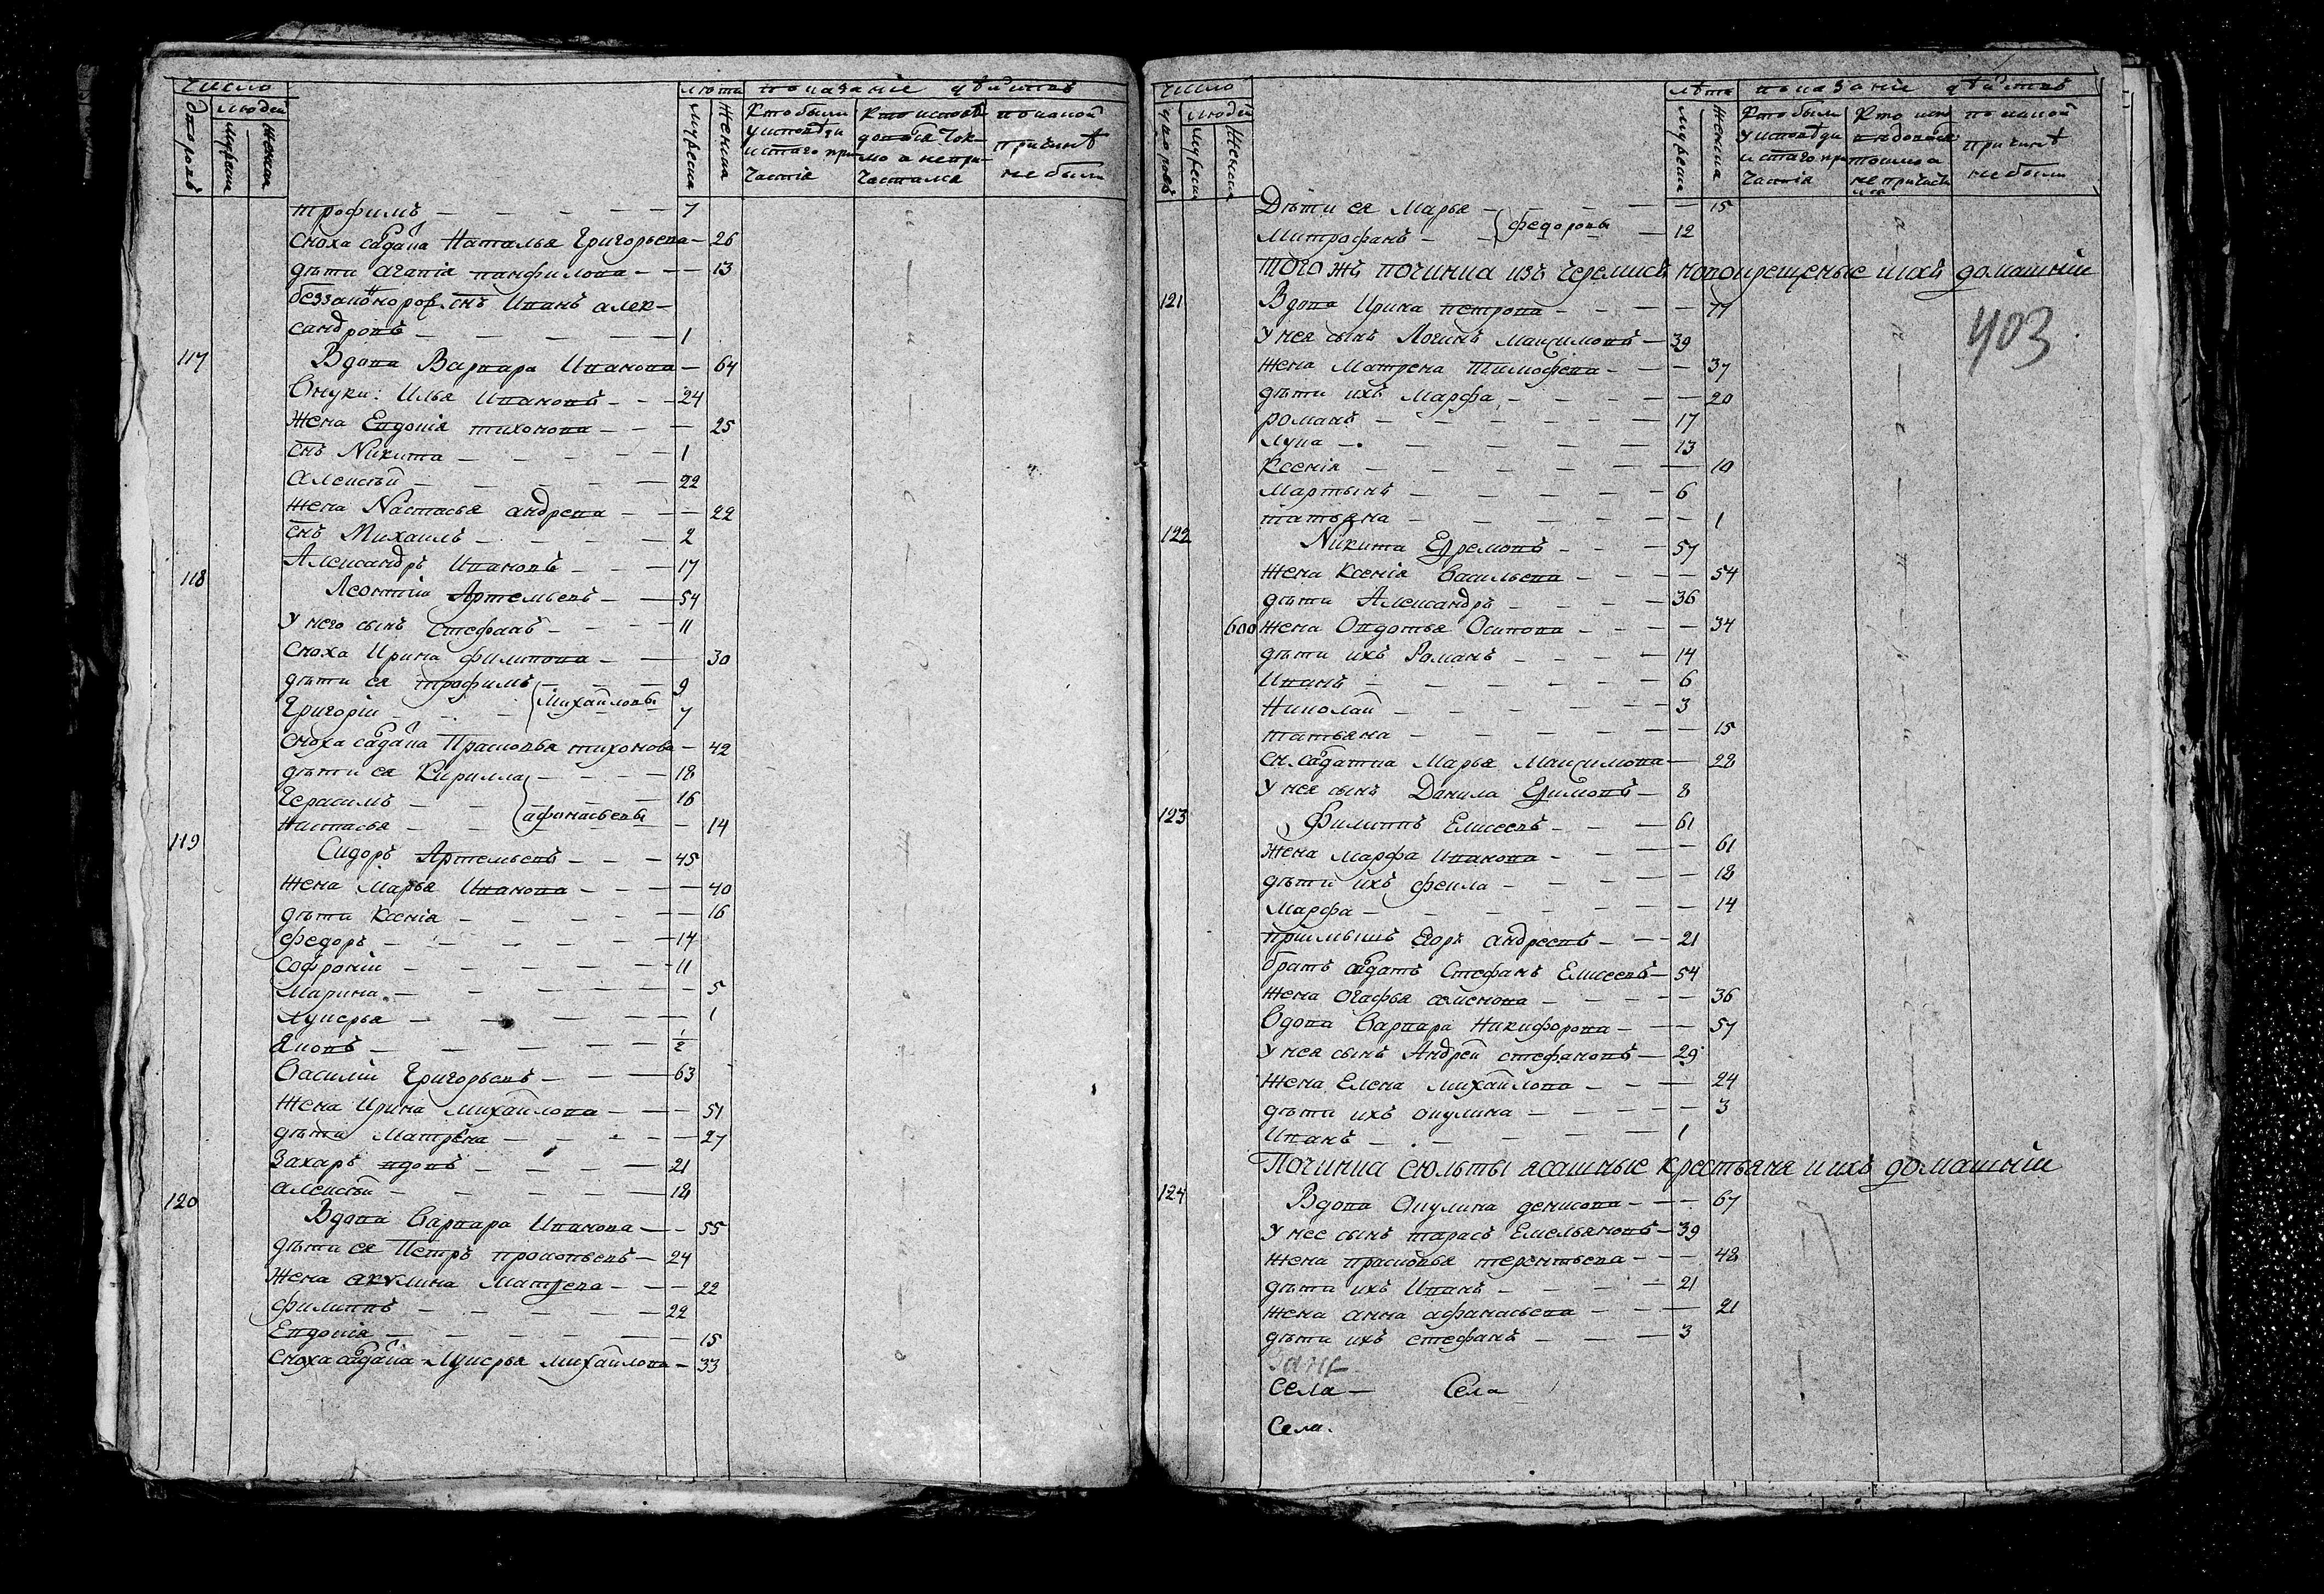 число
лѣта показаніе дѣйствъ
дворовъ
людей
мужеска
женска
мужеска
женска
Кто были у исповѣди и с͠таго при частія
Кто исповѣ довался ток мо а не при частился
по какой причинѣ не были
трофимъ 7
сноха салдацка Наталья Григорьева 26
дѣти агапіа панфилова 13
беззаконорож. сн͠ъ Иванъ алек-
сандровъ 1
117 Вдова Варвара Иванова 64
Внуки: Илья Ивановъ 24
Жена Евдокіа тихонова 25
сн͠ъ Никита 1
алексѣй 22
жена Настасья андреева 22
сн͠ъ Михаилъ 2
Александръ Ивановъ 17
118 Леонтій Артемьевъ 54
У него сынъ стефанъ 11
сноха Ирина филипова 30
дѣти ея трофимъ 9
Михайловы
Григорій 7
сноха салдацка Прасковья тихонова 42
дѣти ея Кирилла 18
Герасимъ 16
афанасьевы
Настасья 14
119 Сидоръ Артемьевъ 45
Жена Марья Иванова 40
дѣти Ксеніа 16
федоръ 14
софроній 11
Марина 5
лукерья 1
Яковъ 1/2
василій Григорьевъ 63
Жена Ирина михайлова 51
дѣти Матрена 27
Захаръ вдовъ 21
алексѣй 18
120 Вдова Варвара Иванова 55
дѣти ея Петръ прокопьевъ 24
Жена акулина Матвеева 22
филиппъ 22
Евдокіа 15
сноха салдацка Лукерья михайлова 33
число
лѣта показаніе дѣйствъ
дворовъ
людей
мужеска
женска
мужеска
женска
Кто были у исповѣди и с͠таго при частія
Кто испо вѣдовался токмо а не причастился
по какой причинѣ не были
Дѣти ея Марья 15
федоровы
Митрофанъ 12
того жъ починка изъ черемисъ новокрещеные и ихъ домашніи
403
121 Вдова Ирина петрова 77
У нея сынъ Логинъ максимовъ 39
Жена Матрена тимофеева 37
дѣти ихъ Марфа 20
романъ 17
лука 13
Ксеніа 10
Мартынъ 6
татьяна 1
122 Никита Ефремовъ 57
Жена Ксеніа васильева 54
дѣти Александръ 36
600 Жена Овдотья Осипова 34
дѣти ихъ Романъ 14
Иванъ 6
Николай 3
татьяна 15
сн. салдатка Марья Максимова 28
У нея сынъ Данила Ефимовъ 8
123 Филиппъ Елисеевъ 61
Жена Марфа Иванова 61
дѣти ихъ фекла 18
Марфа 14
приимышъ Егоръ андреевъ 21
братъ салдатъ Стефанъ Елисеевъ 54
Жена огафья семенова 36
вдова варвара Никифорова 57
У нея сынъ Андрей стефановъ 29
Жена Елена михайлова 24
дѣти ихъ окулина 3
Иванъ 1
Починка сюльты ясашные крестьяня и ихъ домашніи
124 Вдова Окулина денисова 67
У нее сынъ тарасъ Емельяновъ 39
Жена прасковья терентьева 48
дѣти ихъ Иванъ 21
Жена анна афанасьева 21
дѣти ихъ стефанъ 3
села Села
Села.